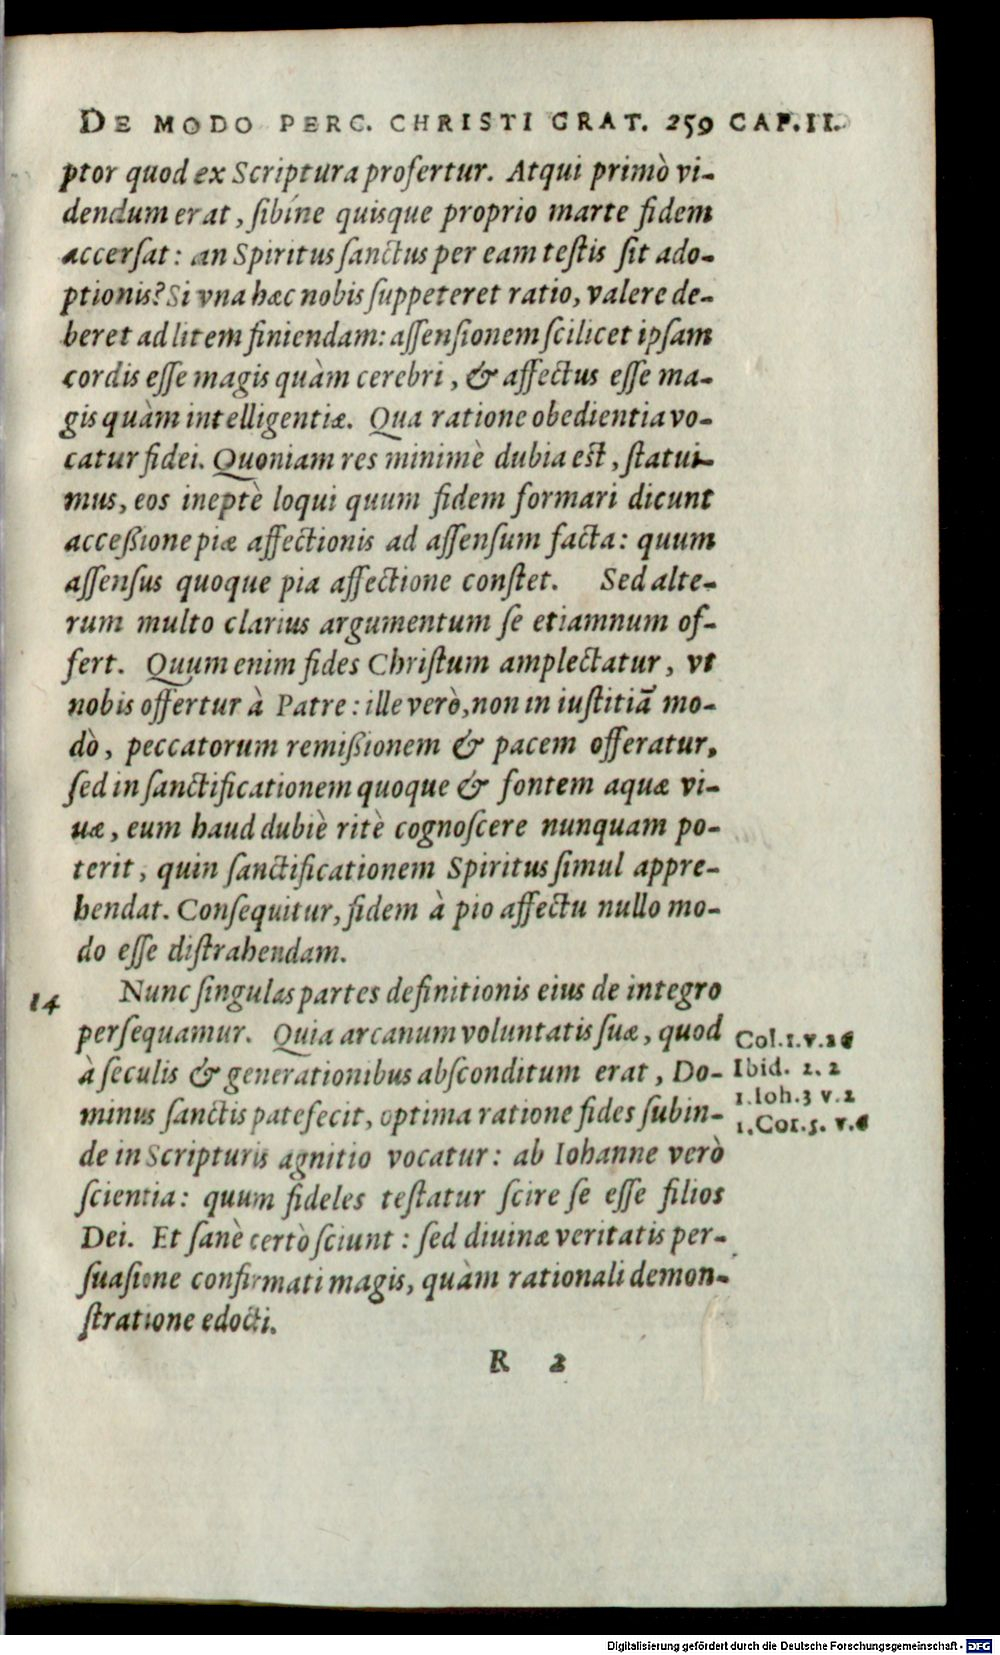 DE MODO PERC. CHRISTI GRAT. 259 CAP. II.
ptor quod ex Scriptura profertur. Atqui primò vi-
dendum erat, sibíne quisque proprio marte fidem
accersat: an Spiritus sanctus per eam testis sit ado-
ptionis? Si vna hæc nobis suppeteret ratio, valere de-
beret ad litem finiendam: assensionem scilicet ipsam
cordis esse magis quàm cerebri, & affectus esse ma-
gis quàm intelligentiæ. Qua ratione obedientia vo-
catur fidei. Quoniam res minimè dubia est, statui-
mus, eos ineptè loqui quum fidem formari dicunt
acceßione piæ affectionis ad assensum facta: quum
assensus quoque pia affectione constet. Sed alte-
rum multo clarius argumentum se etiamnum of-
fert. Quum enim fides Christum amplectatur, vt
nobis offertur à Patre: ille verò, non in iustitiã mo-
dò, peccatorum remißionem & pacem offeratur,
sed in sanctificationem quoque & fontem aquæ vi-
uæ, eum haud dubiè ritè cognoscere nunquam po-
terit, quin sanctificationem Spiritus simul appre-
hendat. Consequitur, fidem à pio affectu nullo mo-
do esse distrahendam.
14 Nunc singulas partes definitionis eius de integro
persequamur. Quia arcanum voluntatis suæ, quod
à seculis & generationibus absconditum erat, Do-
minus sanctis patefecit, optima ratione fides subin-
de in Scripturis agnitio vocatur: ab Iohanne verò
scientia: quum fideles testatur scire se esse filios
Dei. Et sanè certò sciunt: sed diuinæ veritatis per-
suasione confirmati magis, quàm rationali demon-
stratione edocti.
Col. 1. v. 26
Ibid. 2. 2
1. Ioh. 3 v. 2
1. Cor. 5. v. 6
R 2
Digitalisierung gefördert durch die Deutsche Forschungsgemeinschaft - DFG